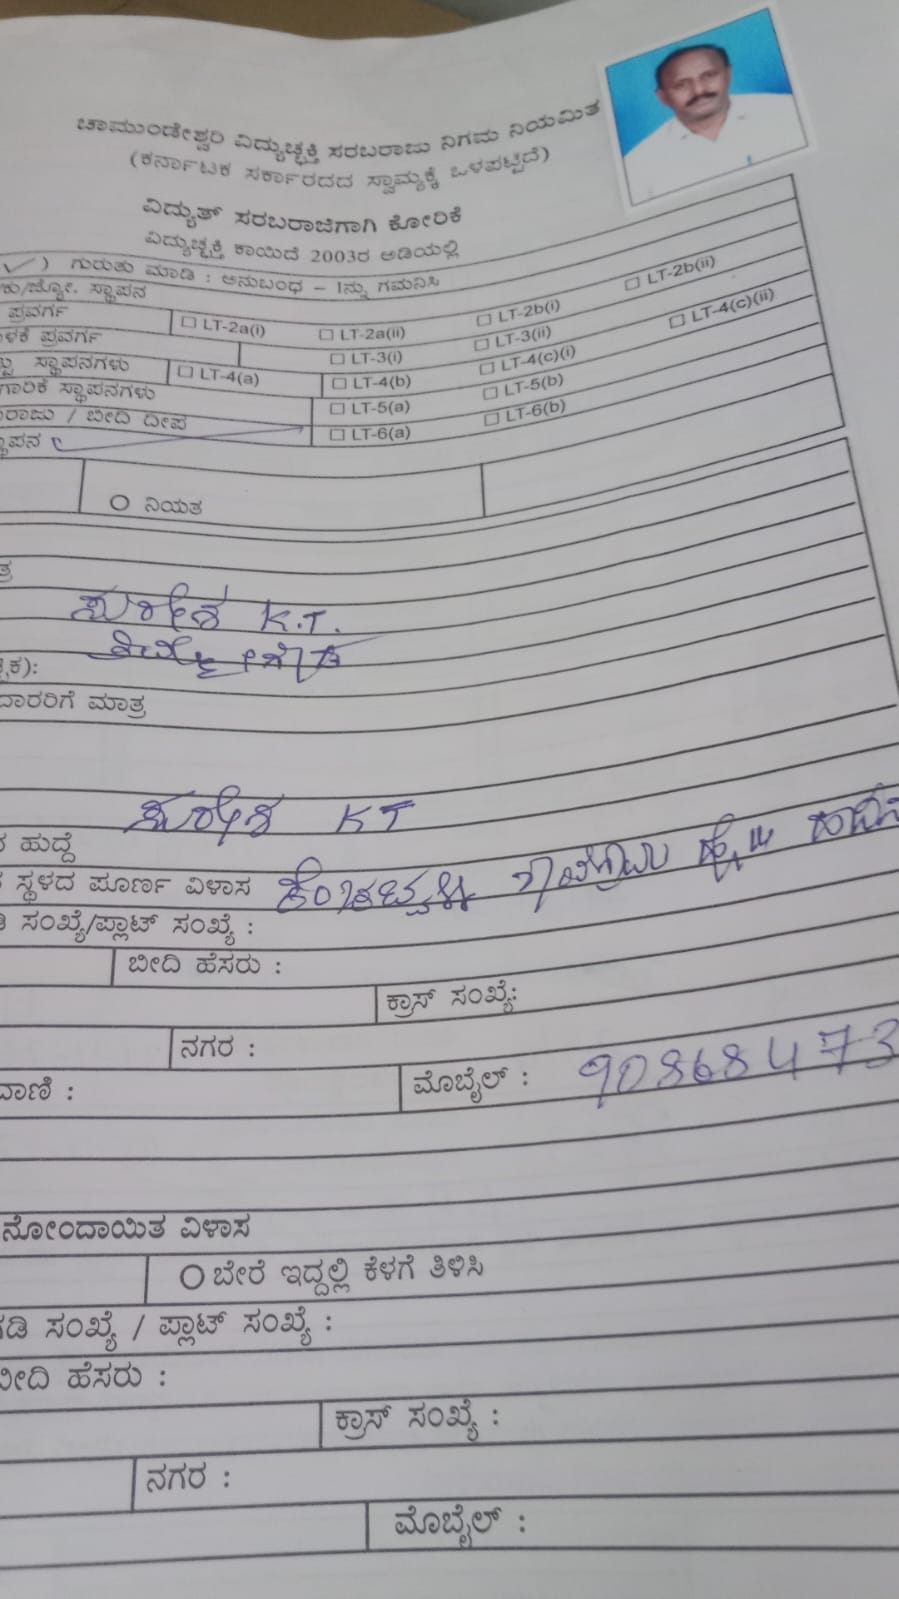 ಚಾಮುಂಡೇಶ್ವರಿ ವಿದ್ಯುಚ್ಛಕ್ತಿ ಸರಬರಾಜು ನಿಗಮ ನಿಯಮಿತ
(ಕರ್ನಾಟಕ ಸರ್ಕಾರದದ ಸ್ವಾಮ್ಯಕ್ಕೆ ಒಳಪಟ್ಟಿದೆ)
ವಿದ್ಯುತ್ ಸರಬರಾಜಿಗಾಗಿ ಕೋರಿಕೆ
ವಿದ್ಯುಚ್ಛಕ್ತಿ ಕಾಯಿದೆ 2003ರ ಅಡಿಯಲ್ಲಿ
✓) ಗುರುತು ಮಾಡಿ : ಅನುಬಂಧ - 1ನ್ನು ಗಮನಿಸಿ
ಕು/ಜ್ಯೋ. ಸ್ಥಾಪನ
ಪ್ರವರ್ಗ LT-2a(i) LT-2a(ii) LT-2b(i) LT-2b(ii)
ಳಕೆ ಪ್ರವರ್ಗ LT-3(i) LT-3(ii)
ಸ್ಥಾಪನಗಳು LT-4(a) LT-4(b) LT-4(c)(i) LT-4(c)(ii)
ಗಾರಿಕೆ ಸ್ಥಾಪನಗಳು LT-5(a) LT-5(b)
ರಾಜು / ಬೀದಿ ದೀಪ LT-6(a) LT-6(b)
ಸ್ಥಾಪನ
ನಿಯತ
ತ್ರ
ಸುರೇಶ K.T.
ಕ):
ದಾರರಿಗೆ ಮಾತ್ರ
ಸುರೇಶ KT
ರ ಹುದ್ದೆ
ಸ್ಥಳದ ಪೂರ್ಣ ವಿಳಾಸ
ಡಿ ಸಂಖ್ಯೆ/ಪ್ಲಾಟ್ ಸಂಖ್ಯೆ :
ಬೀದಿ ಹೆಸರು :
ಕ್ರಾಸ್ ಸಂಖ್ಯೆ:
ನಗರ :
ವಾಣಿ : ಮೊಬೈಲ್ : 908684473
ನೋಂದಾಯಿತ ವಿಳಾಸ
ಬೇರೆ ಇದ್ದಲ್ಲಿ ಕೆಳಗೆ ತಿಳಿಸಿ
ಗಡಿ ಸಂಖ್ಯೆ / ಪ್ಲಾಟ್ ಸಂಖ್ಯೆ :
ಬೀದಿ ಹೆಸರು :
ಕ್ರಾಸ್ ಸಂಖ್ಯೆ :
ನಗರ :
ಮೊಬೈಲ್ :